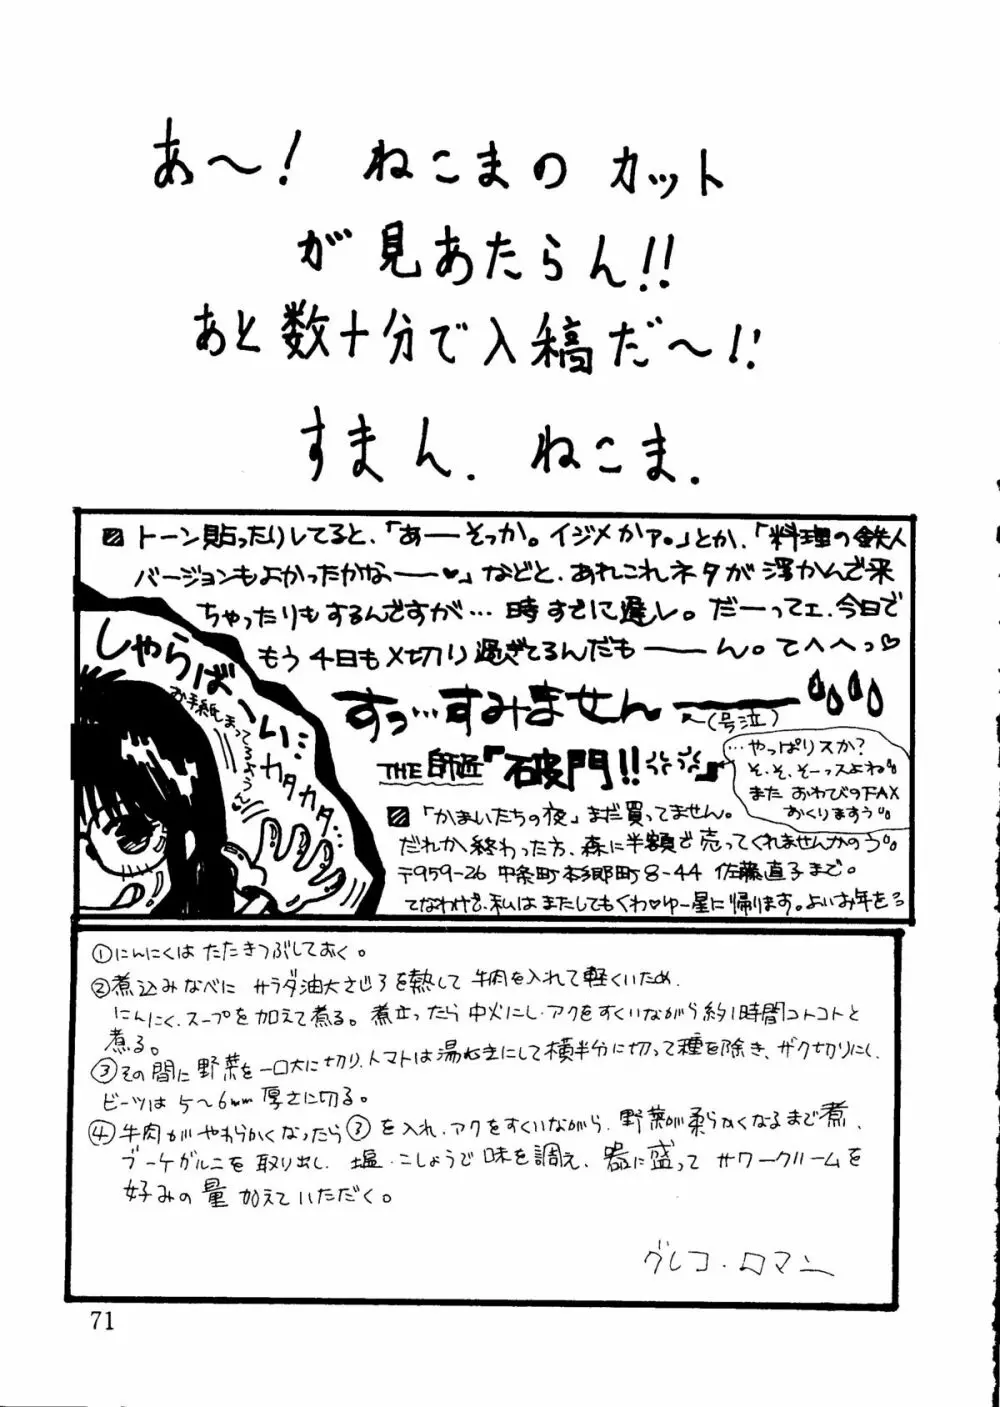 あ〜! ねこまの カット
が見あたらん!!
あと数十分で入稿だ〜!!
すまん. ねこま.
トーン貼ったりしてると、「あーそっか。イジメかァ。」とか、「料理の鉄人
バージョンもよかったかなー♥」などと、あれこれネタが浮かんで来
ちゃったりもするんですが…時すでに遅し。だーってェ、今日で
もう4日も〆切り過ぎてるんだもーん。てへへっ♡
すっ…すみませんー
(号泣)
THE 師匠『破門!!』
…やっぱりスか?
そ・そ、そーっスよね
また おわびのFAX
おくりますう
「かまいたちの夜」まだ買ってません。
だれか終わった方、森に半額で売ってくれませんかのう
〒959-26 中条町本郷町8-44 佐藤直子まで。
てなわけで、私はまたしてもくわ♥ゆー星に帰ります。よいお年を
しゃらば
へい…
カタカタ…
お手紙まってるようん
①にんにくは たたきつぶしておく。
②煮込みなべに サラダ油大さじ3を熱して 牛肉を入れて軽くいため、
にんにく、スープを加えて煮る。煮立ったら中火にし、アクをすくいながら約1時間コトコトと
煮る。
③その間に野菜を一口大に切り、トマトは湯むきにして横半分に切って種を除き、ザク切りにし、
ビーツは5〜6mm厚さに切る。
④牛肉がやわらかくなったら③を入れ、アクをすくいながら、野菜が柔らかくなるまで煮、
ブーケガルニを取り出し、塩、こしょうで味を調え、器に盛って サワークリームを
好みの量 加えていただく。
グレコ・ロマン
71